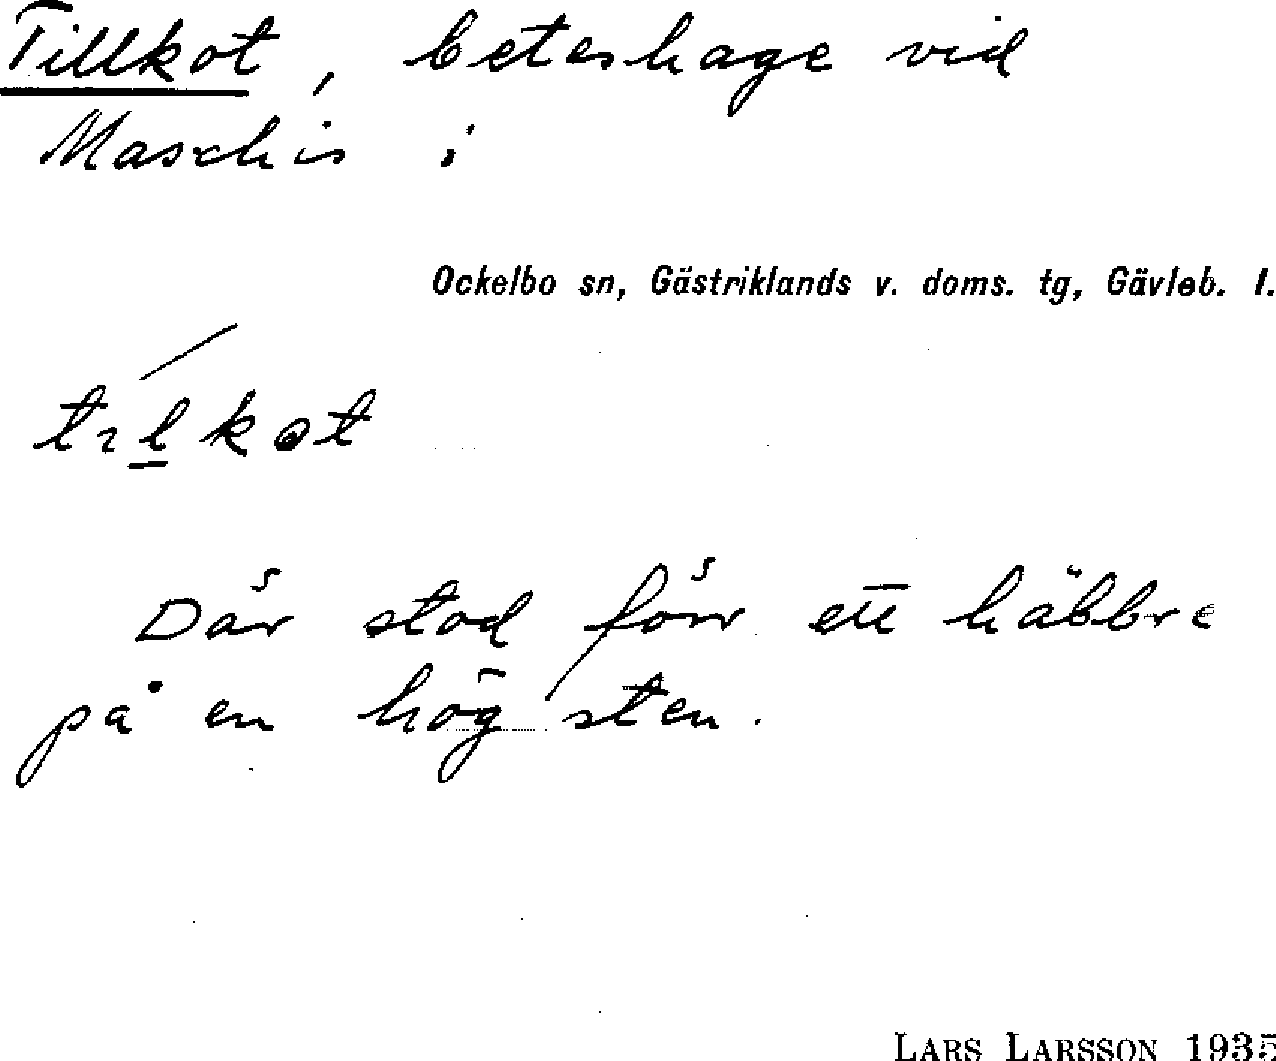 Tillkot, beteshage vid
Maschis i
Ockelbo sn, Gästriklands v. doms. tg, Gävleb. l.
tılkot
Där stod förr ett häbbre
på en hög sten.
LARS LARSSON 1935